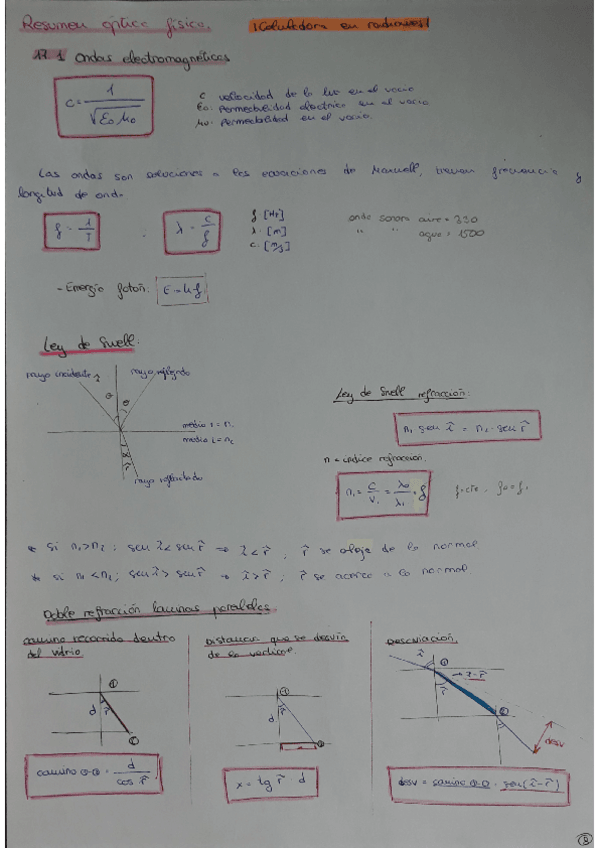 Resumen óptica física. ¡Calculadora en radianes!
17.1 Ondas electromagnéticas
C = 1 / √(ε₀ μ₀)
C velocidad de la luz en el vacío
ε₀: permeabilidad eléctrica en el vacío
μ₀: permeabilidad en el vacío.
Las ondas son soluciones a las ecuaciones de Maxwell, tienen frecuencia y
longitud de onda
f = 1/T
λ = c/f
f [Hz]
λ: [m]
c: [m/s]
onda sonora aire = 330
" " agua = 1500
- Energía fotón: E = h f
Ley de Snell.
rayo incidente rayo reflejado
medio 1 = n₁
medio 2 = n₂
rayo refractado
Ley de Snell refracción:
n₁ sen î = n₂ · sen r̂
n = índice refracción
n₁ = c/v₁ = λ₀/λ₁ = f
f = cte
* si n₁ > n₂ ; sen î < sen r̂ → î < r̂ , r̂ se aleja de la normal
* si n₁ < n₂ ; sen î > sen r̂ → î > r̂ ; r̂ se acerca a la normal
Doble refracción láminas paralelas.
camino recorrido dentro
del vidrio
①
d r̂
②
camino ①-② = d / cos r̂
Distancia que se desvía
de la vertical
①
d r̂
②
x = tg r̂ · d
Desviación
î ①
î - r̂
r̂
②
desv
desv = camino ①-② · sen(î - r̂)